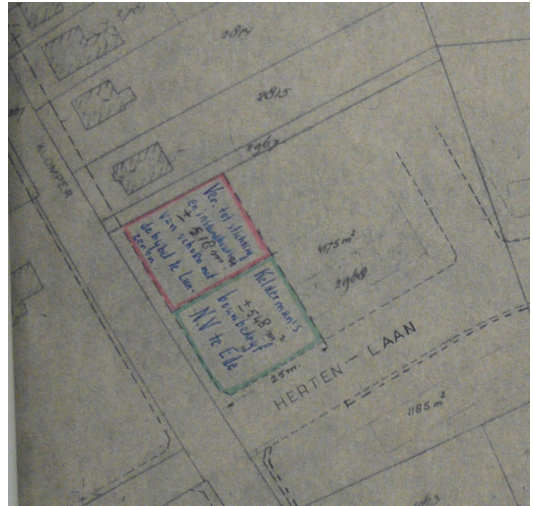 2814
2815
KLOMPER
Ver. tot stichting
en instandhouding
± 518 m²
van scholen met
de bijbel te Lun-
teren
4175 m²
2968
Keldermanis
bouwbedrijf
± 548 m²
NV te Ede
25 m.
HERTEN - LAAN
1185 m²